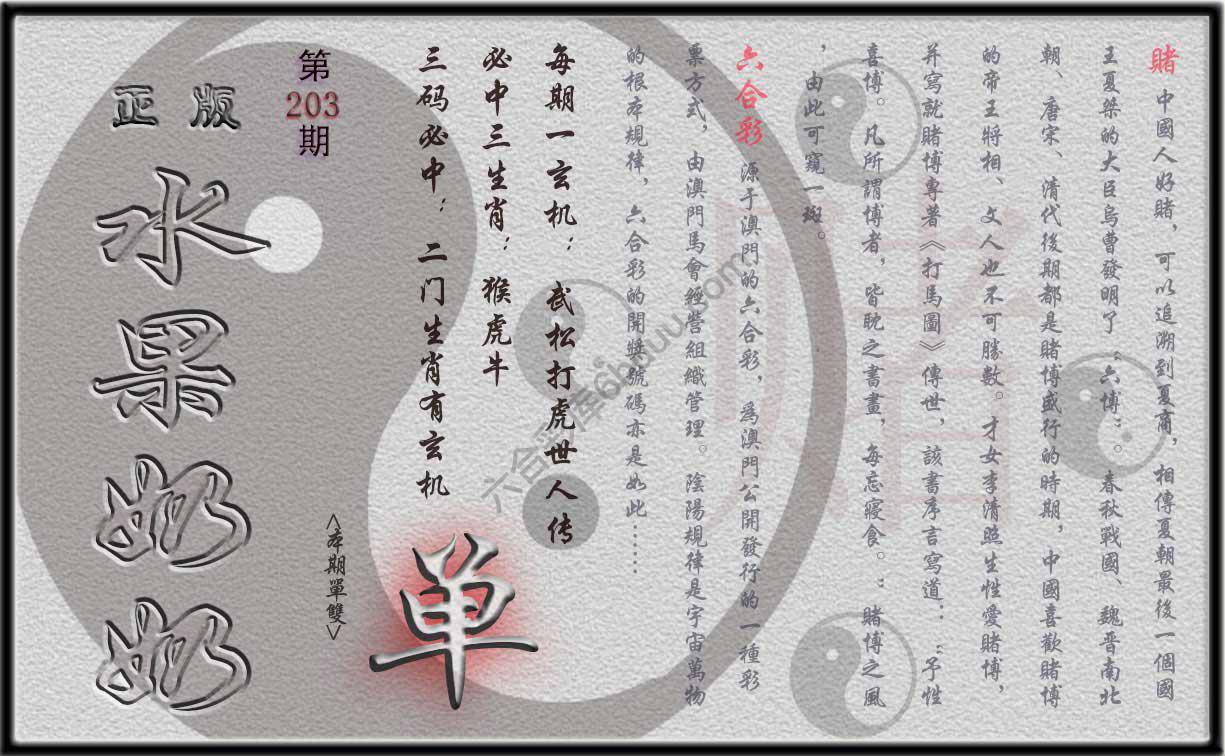 賭 中國人好賭，可以追溯到夏商，相傳夏朝最後一個國
王夏桀的大臣烏曹發明了“六博”。春秋戰國、魏晋南北
朝、唐宋、清代後期都是賭博盛行的時期，中國喜歡賭博
的帝王將相、文人也不可勝數。才女李清照生性愛賭博，
并寫就賭博專著《打馬圖》傳世，該書序言寫道：“予性
喜博。凡所謂博者，皆耽之書畫，每忘寢食。：賭博之風
，由此可窺一斑。
六合彩 源于澳門的六合彩，為澳門公開發行的一種彩
票方式，由澳門馬會經營組織管理。陰陽規律是宇宙萬物
的根本規律，六合彩的開獎號碼亦是如此……
每期一玄机：武松打虎世人传
必中三生肖：猴虎牛
三码必中：二门生肖有玄机
第
203
期
正版
水果奶奶
<本期單雙>
单
六合彩库6huuu.com